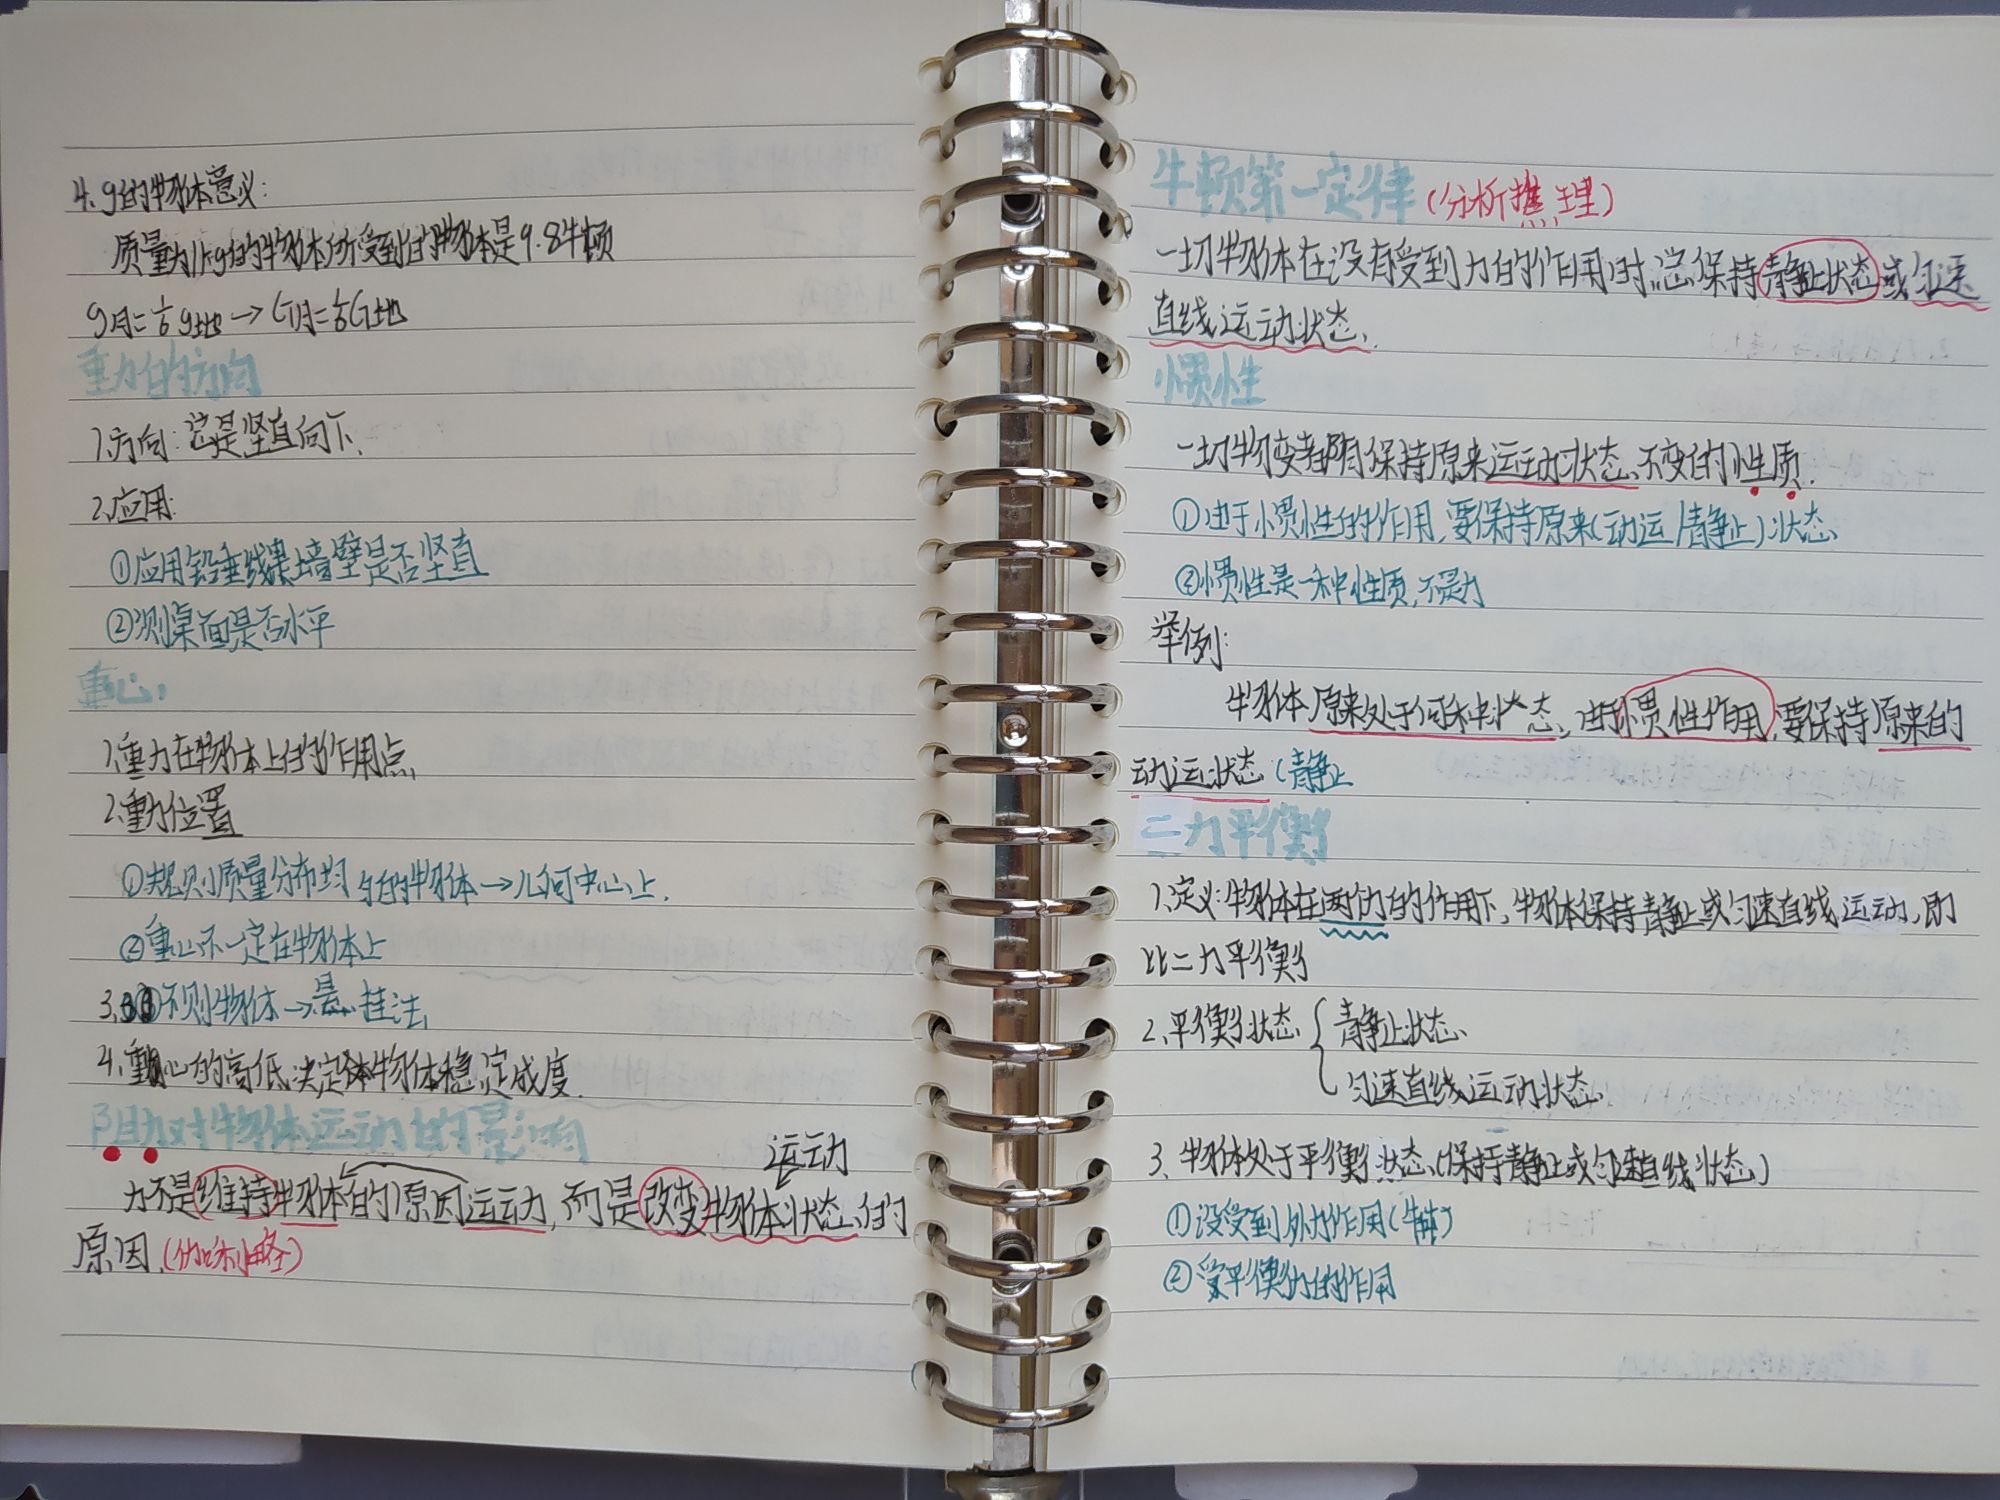 4.g的物体意义:
质量为1kg的物体所受到的物体是9.8牛顿
g月=1/6g地→G月=1/6G地
重力的方向
1.方向:总是坚直向下.
2.应用:
①应用铅垂线 墙壁是否坚直
②测桌面是否水平
重心:
1.重力在物体上的作用点.
2.重力位置
①规则质量分布均匀的物体→几何中心上.
②重心不一定在物体上
3. 不则物体→悬挂法
4.重心的高低决定 物体稳定成度.
阻力对物体运动的影响
运动
力不是维持物体的原因运动,而是改变物体状态的
原因.(伽利略)
牛顿第一定律(分析推理)
一切物体在没有受到力的作用时,总保持静止状态或匀速
直线运动状态.
惯性
一切物 都有保持原来运动状态不变的性质.
①由于惯性的作用,要保持原来(动运/静止)状态
②惯性是一种性质,不是力
举例:
物体原来处于何种状态,由于惯性作用,要保持原来的
动运状态(静止
二力平衡
1.定义:物体在两个力的作用下,物体保持静止或匀速直线运动,即
比二力平衡
2.平衡状态{静止状态
匀速直线运动状态
3.物体处于平衡状态(保持静止或匀速直线状态)
①没受到外力作用(牛 )
②受平衡力的作用